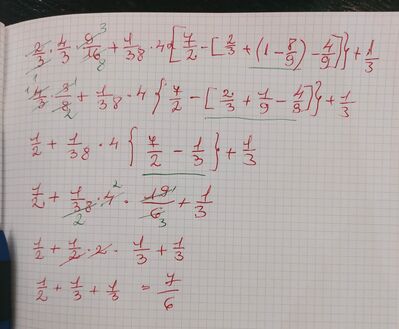 2/3 · 4/3 · 9/16 3 8 + 1/38 · 4{7/2 - [2/3 + (1 - 8/9) - 4/9]} + 1/3
4/3 · 3/8 1 1 2 + 1/38 · 4 {7/2 - [2/3 + 1/9 - 4/9]} + 1/3
1/2 + 1/38 · 4 {7/2 - 1/3} + 1/3
1/2 + 1/38 2 · 4 2 · 19/6 3 + 1/3
1/2 + 1/2 · 2 · 1/3 + 1/3
1/2 + 1/3 + 1/3 = 7/6